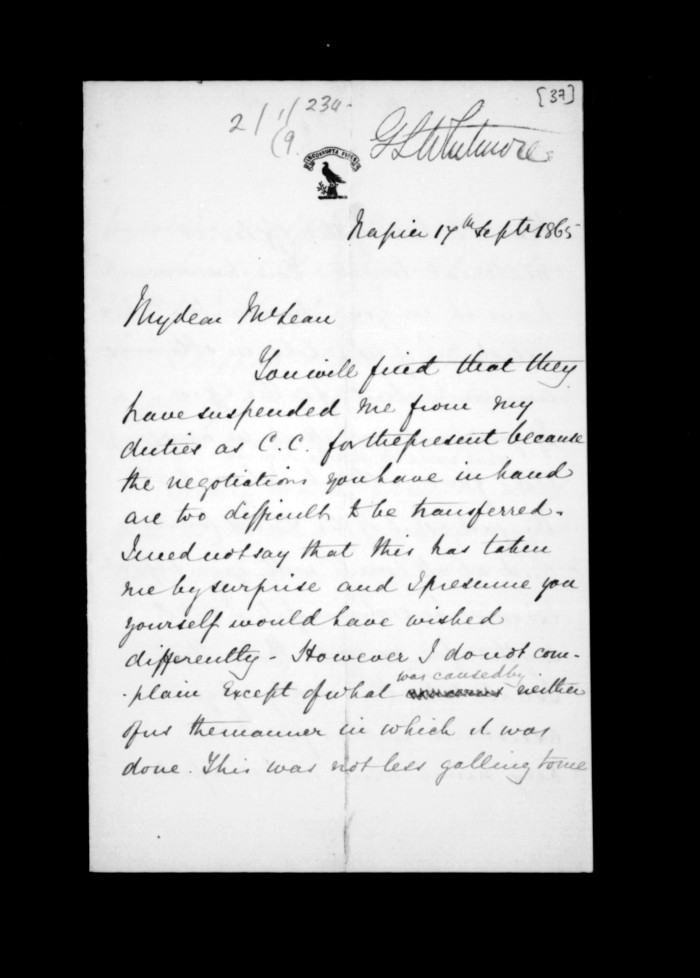 [37]
234
2/1/9.
G S Whitmore
INCORRUPTA FIDES
Napier 17th Septr 1865
My dear McLean
You will find that they
have suspended me from my
duties as C.C. for the present because
the negotiations you have in hand
are too difficult to be transferred.
I need not say that this has taken
me by surprise and I presume you
yourself would have wished
differently - However I do not com-
-plain Except of what was caused by neither
of us the manner in which it was
done. This was not less galling to me